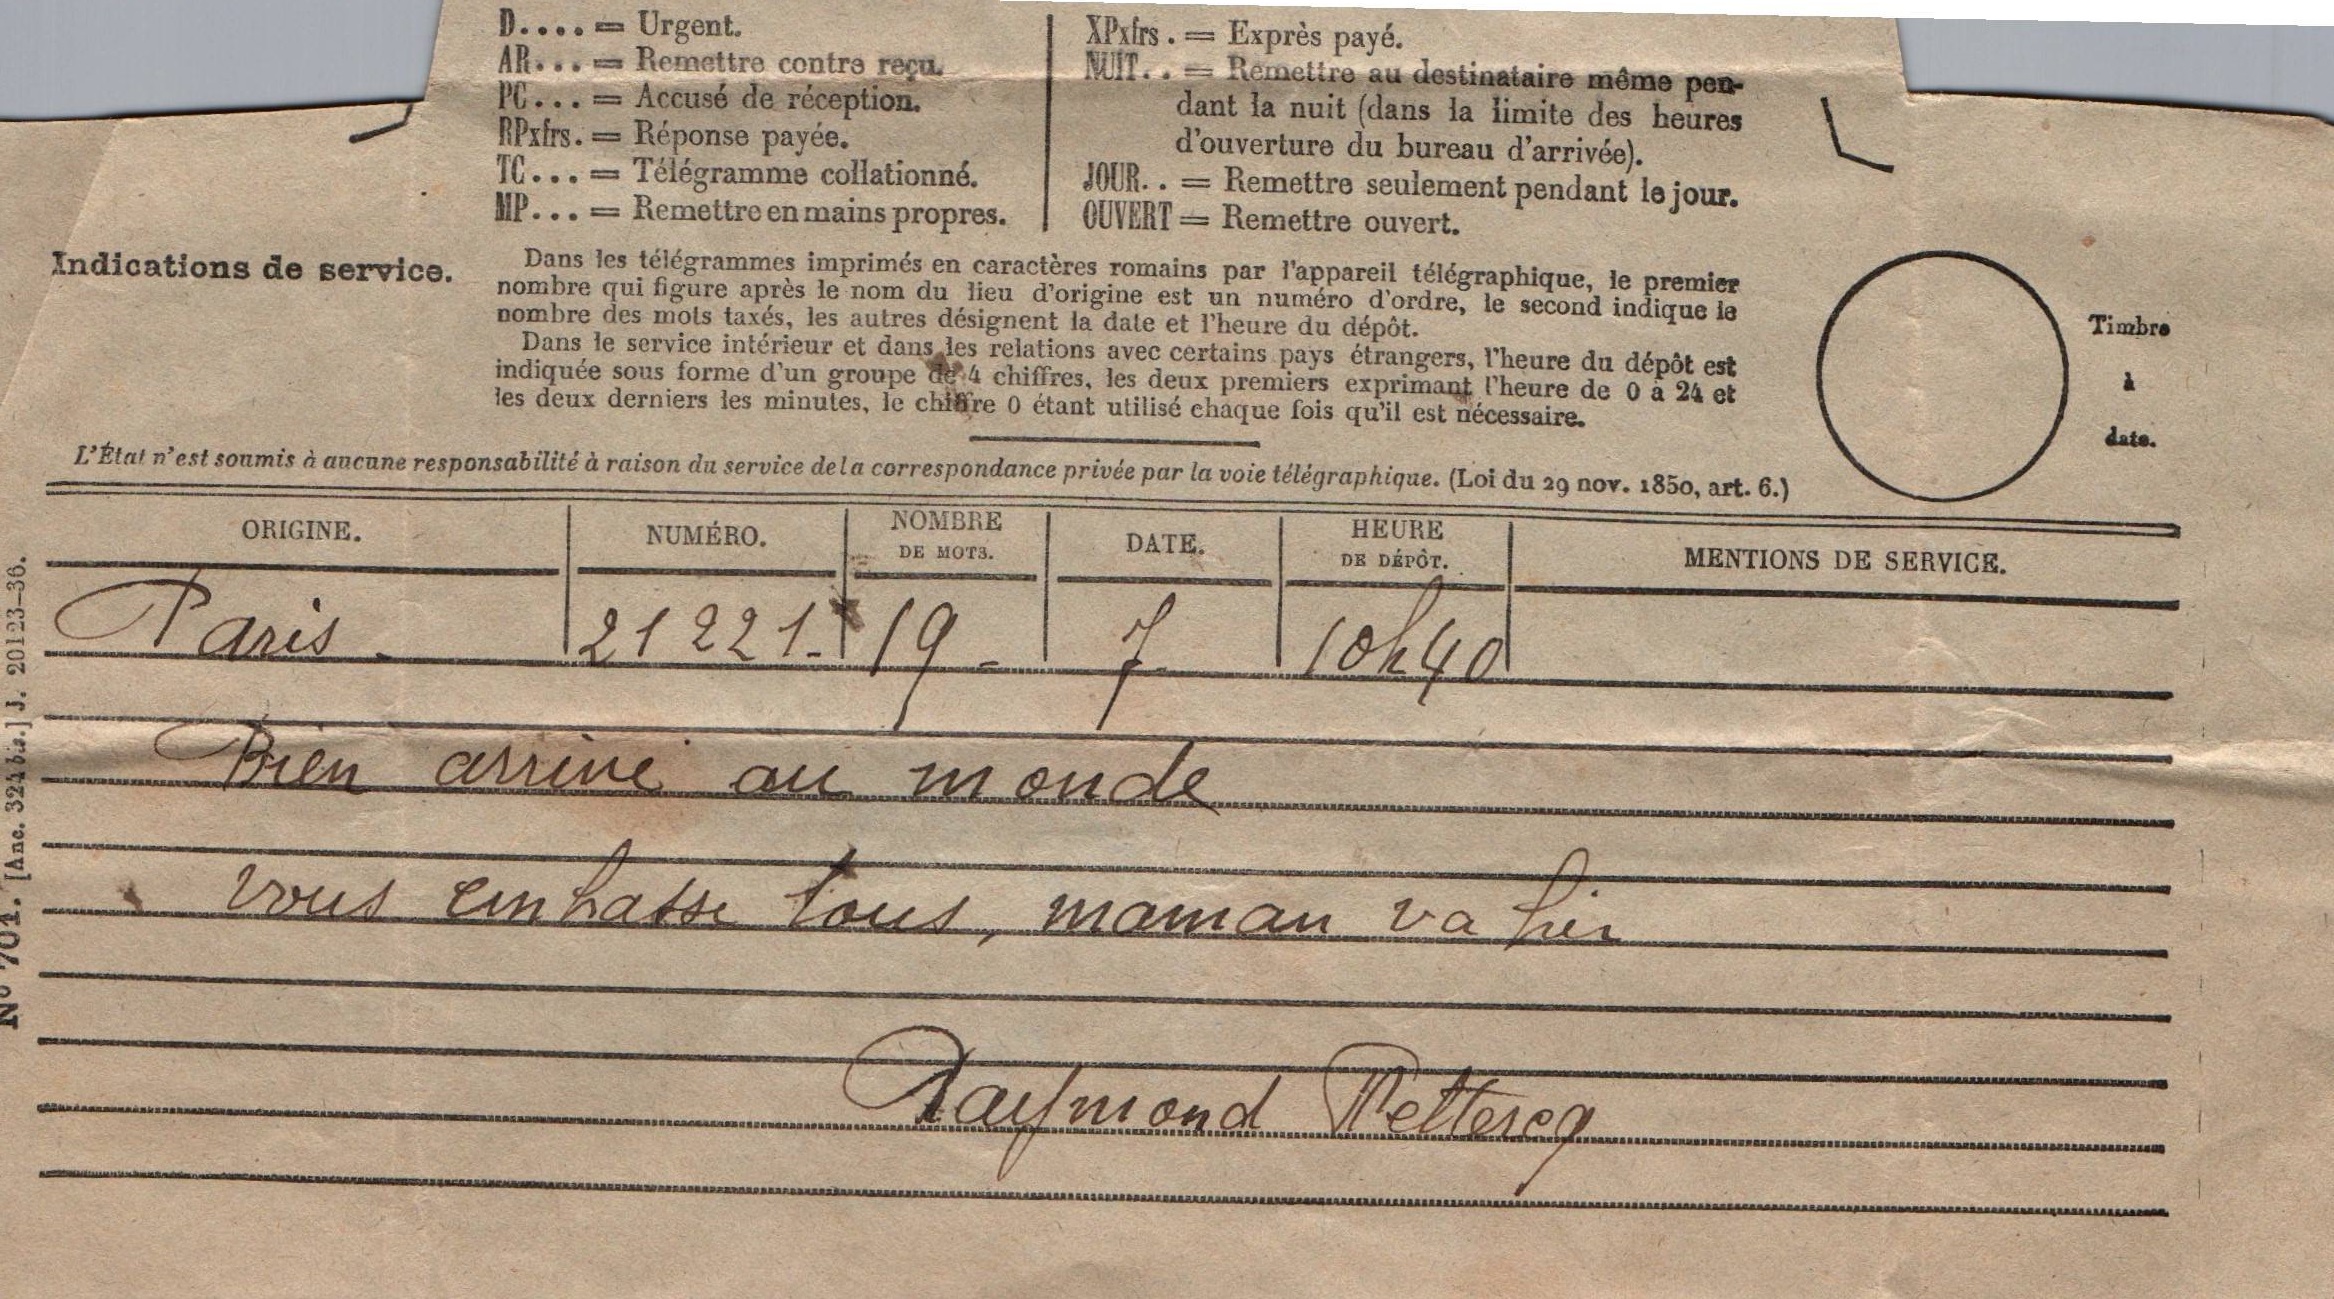 D.... = Urgent.
AR... = Remettre contre reçu.
PC... = Accusé de réception.
RPxfrs. = Réponse payée.
TC... = Télégramme collationné.
MP... = Remettre en mains propres.
XPxfrs. = Exprès payé.
NUIT.. = Remettre au destinataire même pen-
dant la nuit (dans la limite des heures
d'ouverture du bureau d'arrivée).
JOUR.. = Remettre seulement pendant le jour.
OUVERT = Remettre ouvert.
Indications de service.
Dans les télégrammes imprimés en caractères romains par l'appareil télégraphique, le premier
nombre qui figure après le nom du lieu d'origine est un numéro d'ordre, le second indique le
nombre des mots taxés, les autres désignent la date et l'heure du dépôt.
Dans le service intérieur et dans les relations avec certains pays étrangers, l'heure du dépôt est
indiquée sous forme d'un groupe de 4 chiffres, les deux premiers exprimant l'heure de 0 à 24 et
les deux derniers les minutes, le chiffre 0 étant utilisé chaque fois qu'il est nécessaire.
Timbre
à
date.
L'État n'est soumis à aucune responsabilité à raison du service de la correspondance privée par la voie télégraphique. (Loi du 29 nov. 1850, art. 6.)
ORIGINE.
NUMÉRO.
NOMBRE
DE MOTS.
DATE.
HEURE
DE DÉPÔT.
MENTIONS DE SERVICE.
Paris - 21221 - 19 - 7 10h40
Bien arrivé au monde
vous embrasse tous, maman va bien
Raymond
N° 701. [Anc. 324 bis.] J. 20123-36.